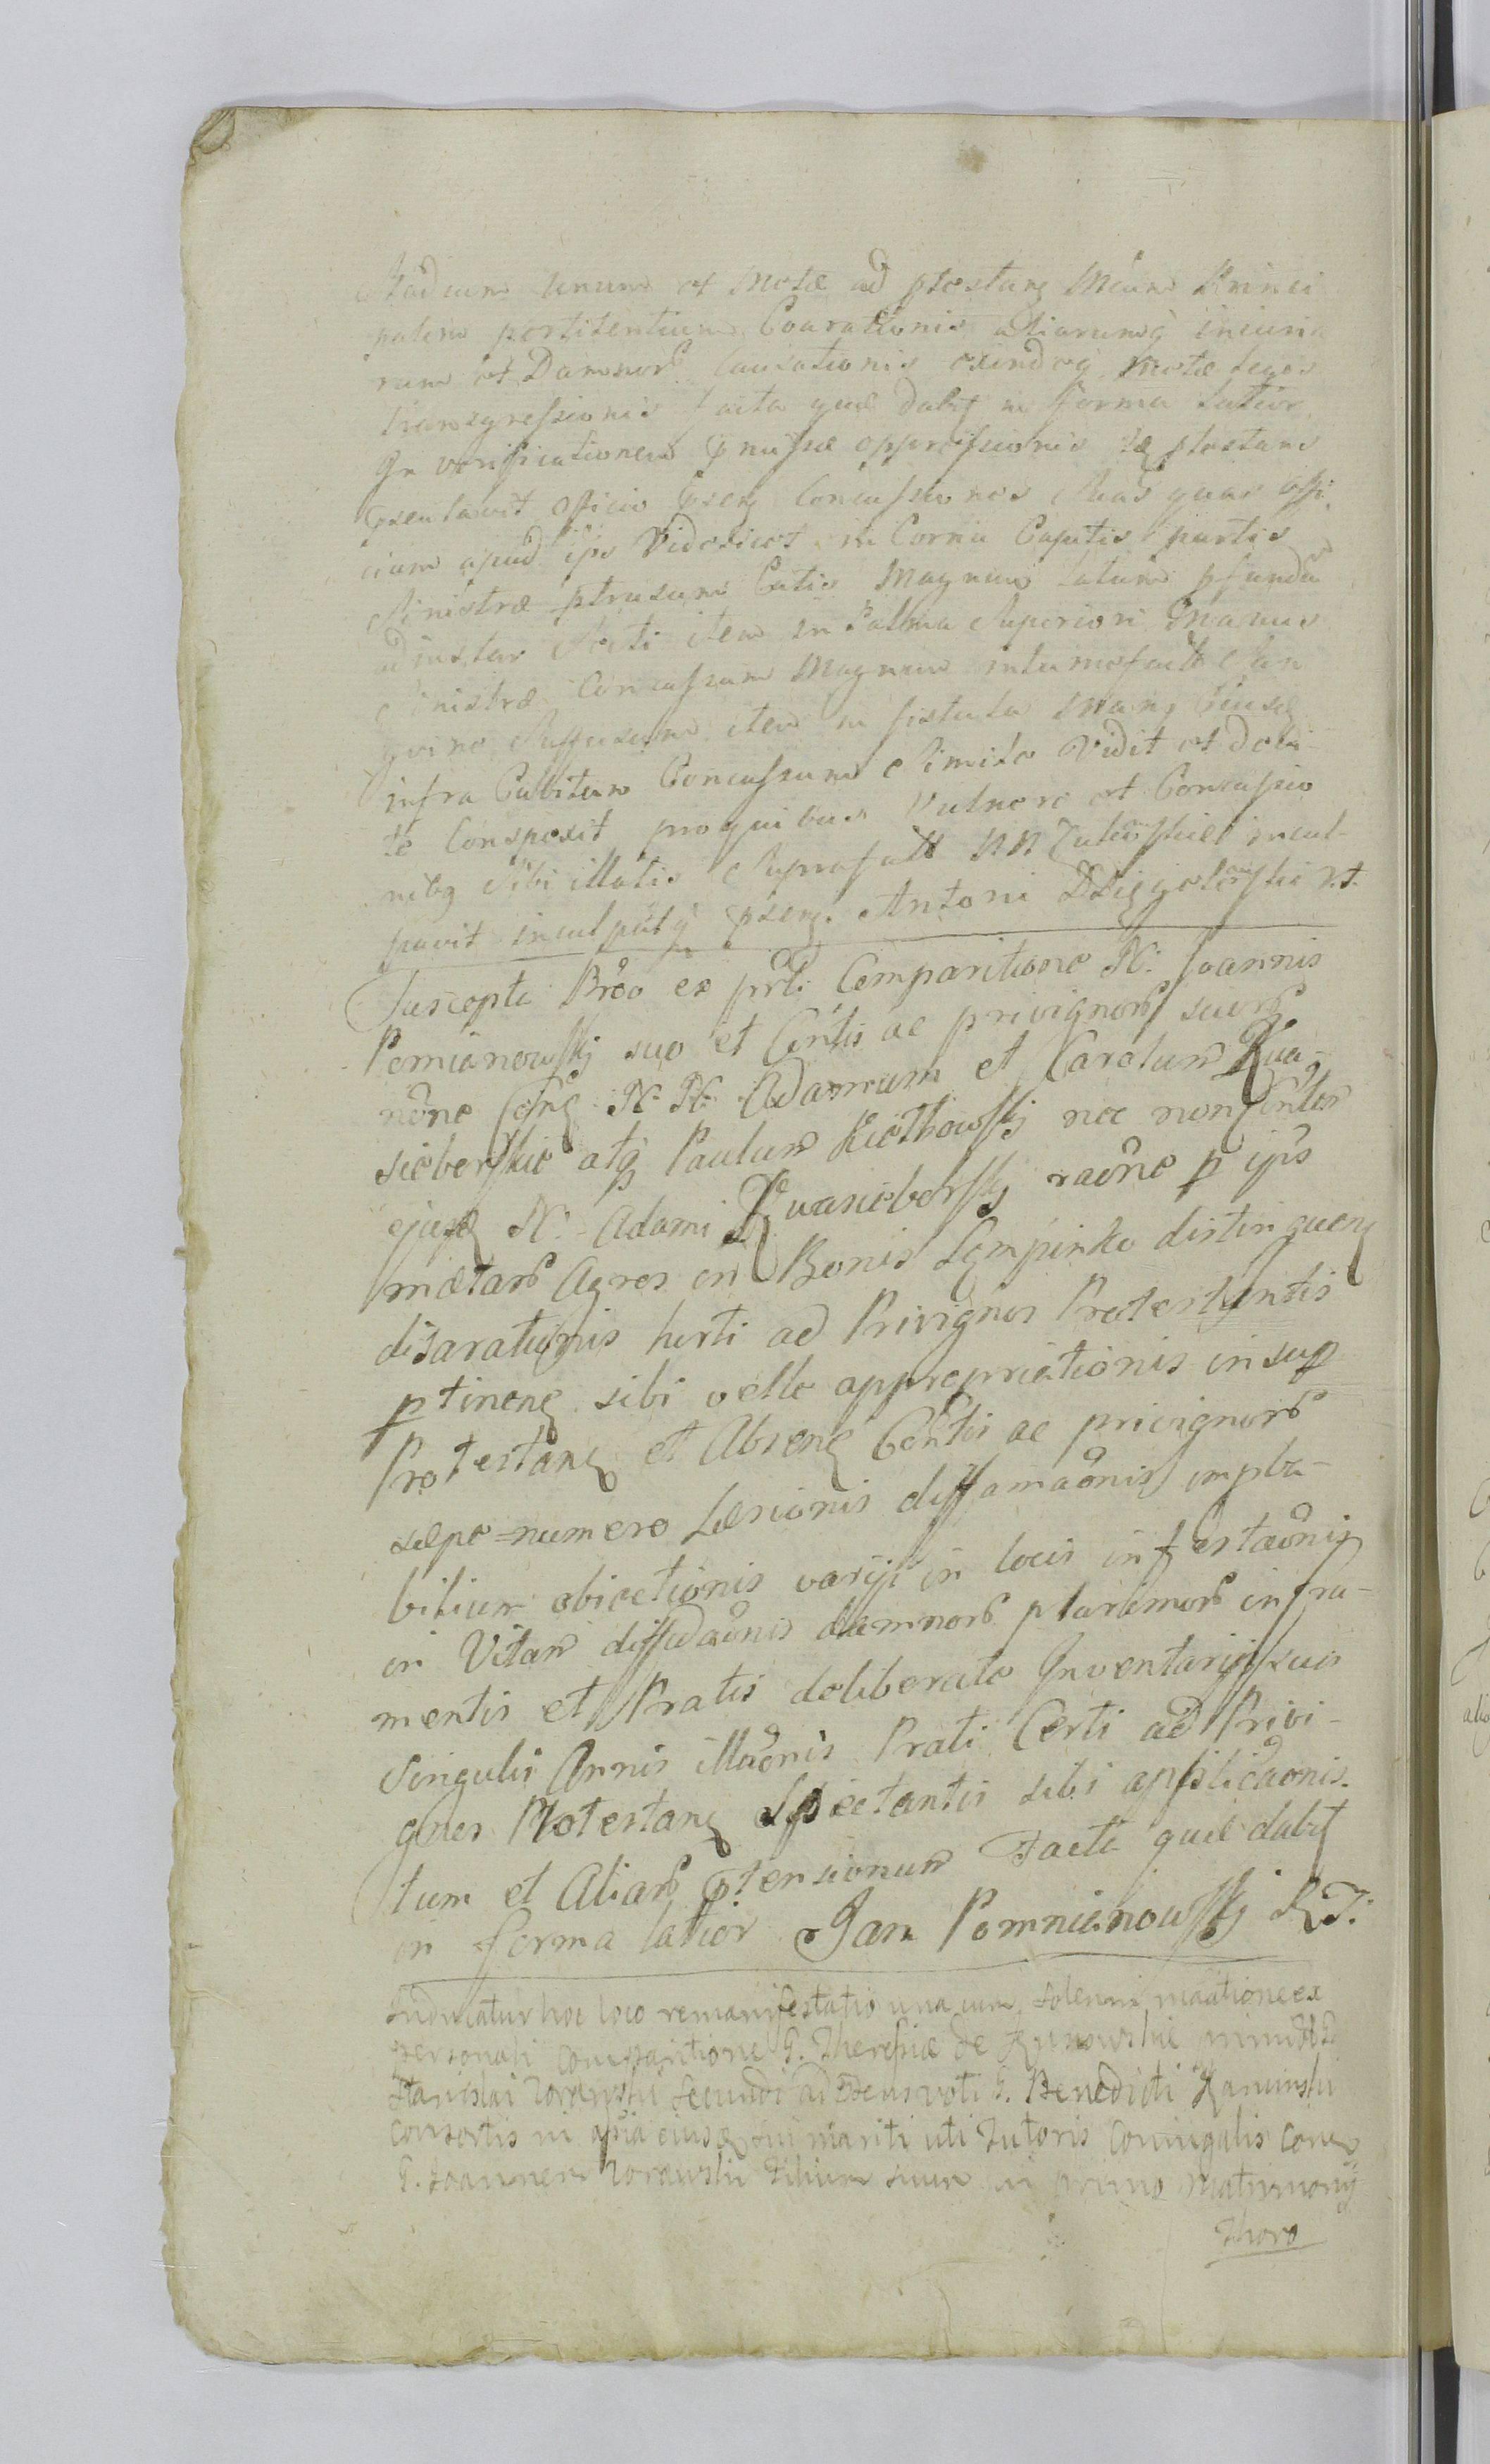 Stadium unum et Metæ ad ptestang Meam Princi
palem pertitentium Coarationis aliarumq iniuria
rum et Damnor causationis exindeq Motæ Leges
transgressionis facta quæ dabt in forma latior
In verificationem pmissæ oppressionis idq ptestans
psentavit officio pseng Concussiones Suas quas offi
cium apud ips Videlicet in Cornu Capitis partis
Sinistræ ptrusum Cutis Magnum latum pfundu
adinstar Icti item in Palma Superiori Manus
Sinistræ Concussum Magnum intumefactu San
gvine Suffusum item in fistula Mang eiusdq
infra Cubitum Concussum Simile Vidit et Docu
te Conspexit pro quibus Vulnere et Concussio
nibq Sibi illatis Suprafatt NN incul-
pavit inculpatq pseng. Antoni rt.
Suscepta Prõo ex prli Comparitione N: Joannis
Pomianowskj suo et Centis ac privignorb suorb
nõne Cong N. N. Adamum et Carolum Kua-
sieborskie atq Paulum Kiełkowskj nec non Centem
ejusdq N. Adami Kuasieborskj raõne p ips
metarb Agros in Bonis Sempinko distingueng
disarationis horti ad Privignos Protestantis
ptineng sibi velle appropriationis insup
Protestang et Abseng Centis ac privignorb
sæpe=numero Læsionis diffamaõnis impba-
bilium obiectionis varijs in locis infestaõnis
in Vitam diffidaõnis damnorb plurimorb in fru-
mentis et Pratis deliberate Inventarijs suis
Singulis Annis illaõnis Prati Certi ad Privi-
gnos Protestang Spectantis sibi applicaõnis.
tum et Aliarb ptensionum Facta quæ dabt
in forma latior Jan Pomnianowskj RT.
Inducatur hoc loco remanifestatio una cum solenni maãtione ex
personali Comparitione G. Theresiæ de primi
Stanislai Zorawski secundi ad pdens voti G. Benedicti Kaminski
consortis in assia eiusdq sui mariti uti Tutoris Coniugalis Cone
G. Joannem Zorawski filium suum in primo Matrimonij
Thoro